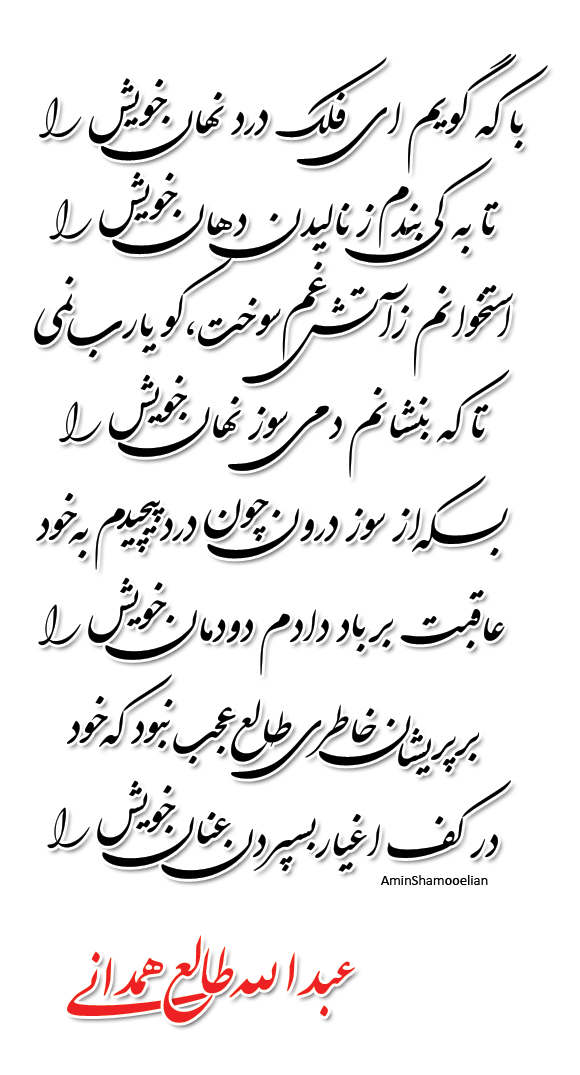 با که گویم ای فلک درد نهان خویش را
تا به کی بندم ز نالیدن دهان خویش را
استخوانم زآتش غم سوخت، کو یارب نمی
تا که بنشانم دمی سوز نهان خویش را
بسکه از سوز درون چون درد پیچیدم به خود
عاقبت بر باد دادم دودمان خویش را
بر پریشان خاطری طالع عجب نبود که خود
در کف اغیار بسپردن عنان خویش را
AminShamooelian
عبدالله طالع همدانی